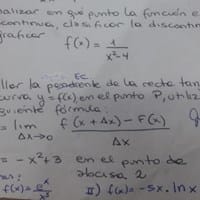 en qué punto la función e
continua, clasificar la discontin
graficar
f(x) = 1/(x²-4)
Ec.
la pendiente de la recta tan
curva y = f(x) en el punto P, utiliz
siguiente fórmula:
= lim Δx→0 (f(x+Δx) - F(x))/Δx
= -x²+3 en el punto de
abscisa 2
f(x) = e^x/x³ II) f(x) = -5x. ln x